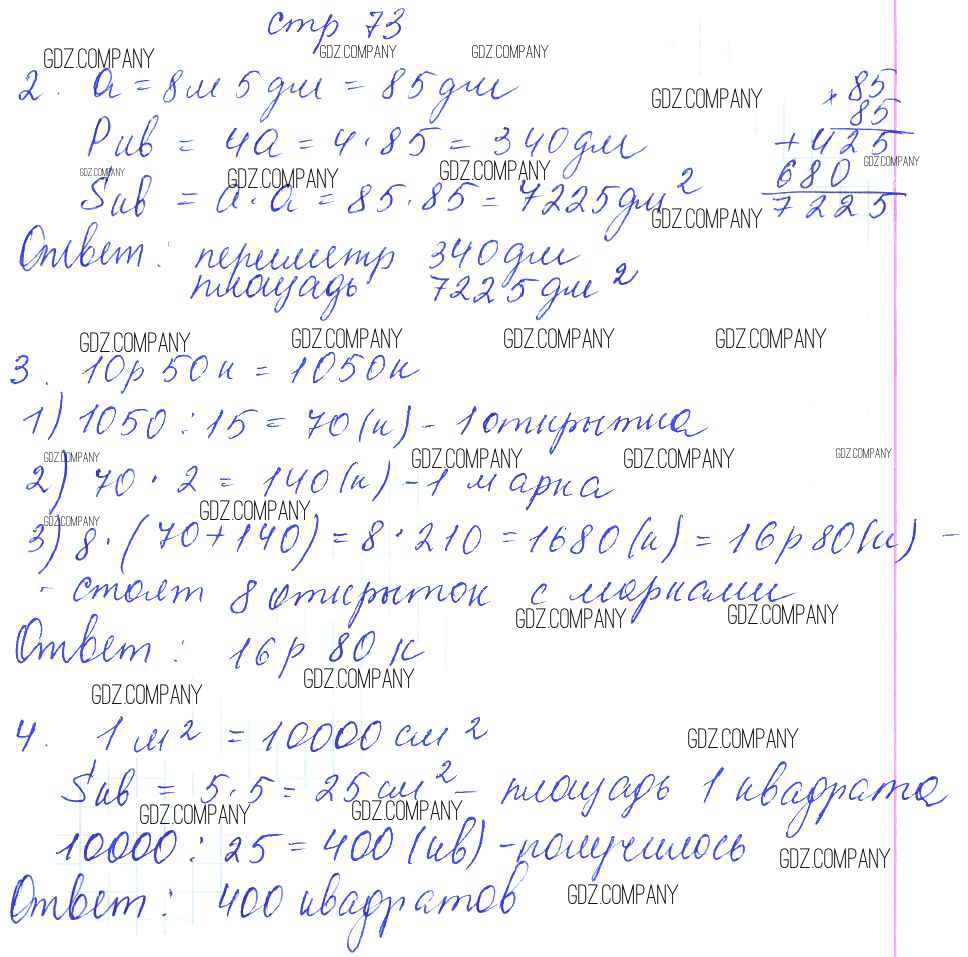 стр 73
GDZ.COMPANY GDZ.COMPANY GDZ.COMPANY
2. a = 8м 5дм = 85дм
GDZ.COMPANY
× 85
85
Pкв = 4a = 4·85 = 340дм
+ 425
GDZ.COMPANY GDZ.COMPANY GDZ.COMPANY GDZ.COMPANY
Sкв = a·a = 85·85 = 7225дм²
680
7225
GDZ.COMPANY
Ответ: периметр 340дм
площадь 7225дм²
GDZ.COMPANY GDZ.COMPANY GDZ.COMPANY GDZ.COMPANY
3. 10р 50к = 1050к
1) 1050 : 15 = 70(к) - 1 открытка
GDZ.COMPANY GDZ.COMPANY GDZ.COMPANY GDZ.COMPANY
2) 70 · 2 = 140(к) - 1 марка
GDZ.COMPANY GDZ.COMPANY
3) 8·(70+140) = 8·210 = 1680(к) = 16р80(к) -
- стоят 8 открыток с марками
GDZ.COMPANY GDZ.COMPANY
Ответ: 16р 80к
GDZ.COMPANY
GDZ.COMPANY
4. 1м² = 10000см²
GDZ.COMPANY
Sкв = 5·5 = 25см² - площадь 1 квадрата
GDZ.COMPANY GDZ.COMPANY
10000 : 25 = 400(кв) - получилось
GDZ.COMPANY
Ответ: 400 квадратов
GDZ.COMPANY